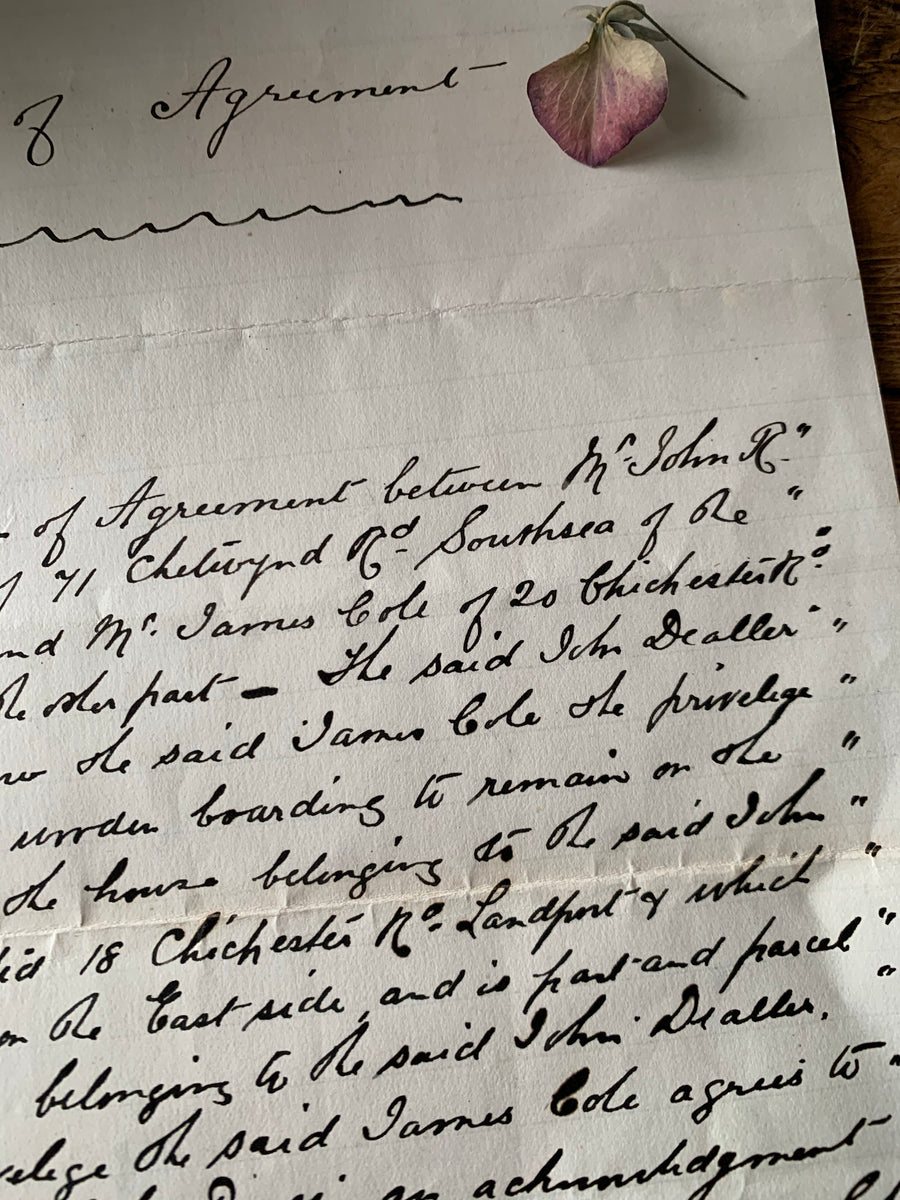 of Agreement
of Agreement between Mr. John R. "
71 Chetwynd Rd. Southsea of the "
nd Mr. James Cole of 20 Chichester Rd.
the other part - The said John Dealler "
w the said James Cole the privelege "
wooden boarding to remain on the "
the house belonging to the said John "
18 Chichester Rd. Landport & which "
on the East side, and is part and parcel "
belonging to the said John Dealler. "
velege the said James Cole agrees to "
an acknowledgment